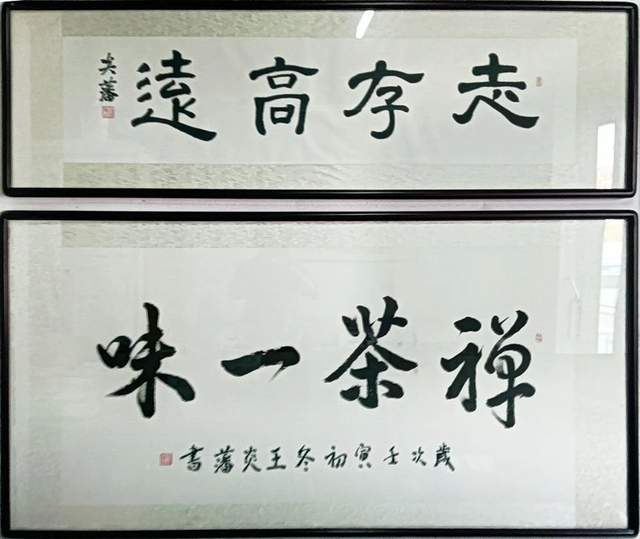 志存高遠
炎藩
禪茶一味
歲次壬寅初冬王炎藩書